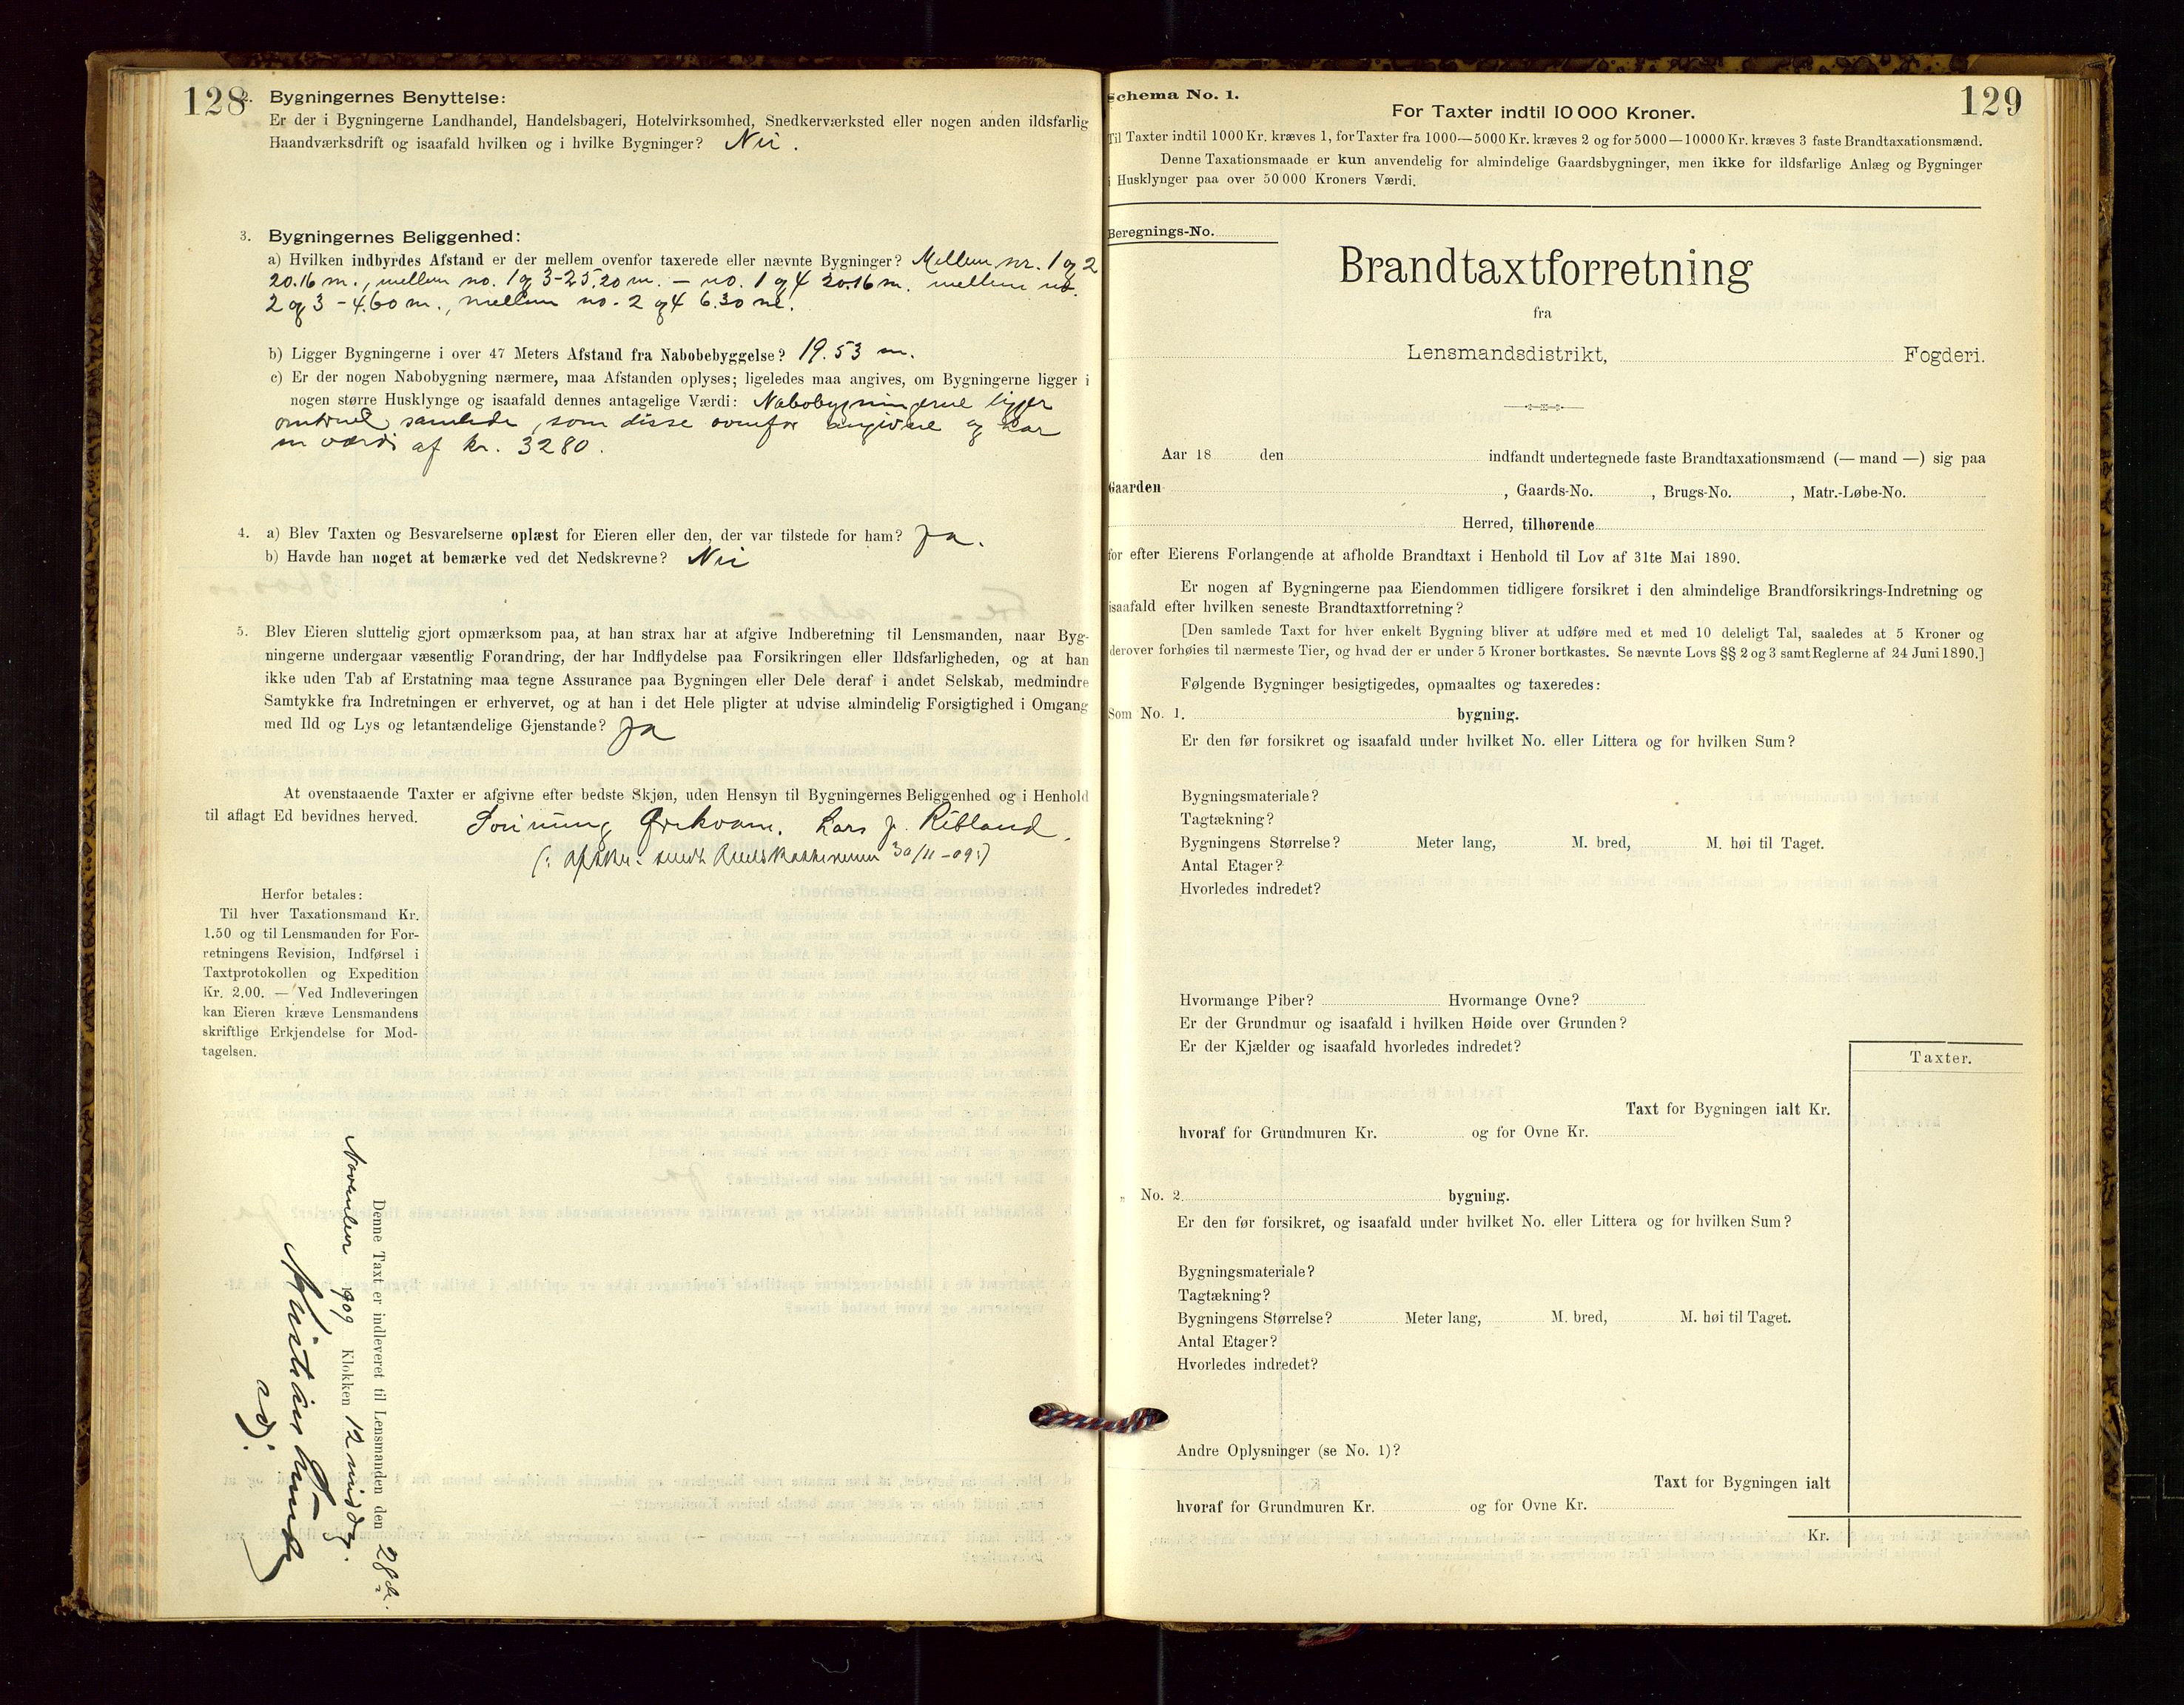 128
2. Bygningernes Benyttelse:
Er der i Bygningerne Landhandel, Handelsbageri, Hotelvirksomhed, Snedkerværksted eller nogen anden ildsfarlig
Haandværksdrift og isaafald hvilken og i hvilke Bygninger? Nei.
3. Bygningernes Beliggenhed:
a) Hvilken indbyrdes Afstand er der mellem ovenfor taxerede eller nævnte Bygninger? Mellem nr. 1 og 2
20.16 m., mellem no. 1 og 3 - 25.20 m. - no. 1 og 4 20.16 m. mellem no.
2 og 3 - 4.60 m., mellem no. 2 og 4 6.30 m.
b) Ligger Bygningerne i over 47 Meters Afstand fra Nabobebyggelse? 19.53 m.
c) Er der nogen Nabobygning nærmere, maa Afstanden oplyses; ligeledes maa angives, om Bygningerne ligger i
nogen større Husklynge og isaafald dennes antagelige Værdi: Nabobygningerne ligger
omtrent samlede, som disse ovenfor angivne og har
en værdi af kr. 3280.
4. a) Blev Taxten og Besvarelserne oplæst for Eieren eller den, der var tilstede for ham? Ja.
b) Havde han noget at bemærke ved det Nedskrevne? Nei
5. Blev Eieren sluttelig gjort opmærksom paa, at han strax har at afgive Indberetning til Lensmanden, naar Byg-
ningerne undergaar væsentlig Forandring, der har Indflydelse paa Forsikringen eller Ildsfarligheden, og at han
ikke uden Tab af Erstatning maa tegne Assurance paa Bygningen eller Dele deraf i andet Selskab, medmindre
Samtykke fra Indretningen er erhvervet, og at han i det Hele pligter at udvise almindelig Forsigtighed i Omgang
med Ild og Lys og letantændelige Gjenstande? Ja
At ovenstaaende Taxter er afgivne efter bedste Skjøn, uden Hensyn til Bygningernes Beliggenhed og i Henhold
til aflagt Ed bevidnes herved. Lars J. Ribland.
30/11 - 09 :)
Herfor betales:
Til hver Taxationsmand Kr.
1.50 og til Lensmanden for For-
retningens Revision, Indførsel i
Taxtprotokollen og Expedition
Kr. 2.00. — Ved Indleveringen
kan Eieren kræve Lensmandens
skriftlige Erkjendelse for Mod-
tagelsen.
Denne Taxt er indleveret til Lensmanden den 28de
November 1909 Klokken 12 middag.
Kristian
ad.
129
Schema No. 1.
For Taxter indtil 10 000 Kroner.
Til Taxter indtil 1000 Kr. kræves 1, for Taxter fra 1000—5000 Kr. kræves 2 og for 5000—10000 Kr. kræves 3 faste Brandtaxationsmænd.
Denne Taxationsmaade er kun anvendelig for almindelige Gaardsbygninger, men ikke for ildsfarlige Anlæg og Bygninger
i Husklynger paa over 50 000 Kroners Værdi.
Beregnings-No.
Brandtaxtforretning
fra
Lensmandsdistrikt, Fogderi.
Aar 18 den indfandt undertegnede faste Brandtaxationsmænd (— mand —) sig paa
Gaarden , Gaards-No. , Brugs-No. , Matr.-Løbe-No.
Herred, tilhørende
for efter Eierens Forlangende at afholde Brandtaxt i Henhold til Lov af 31te Mai 1890.
Er nogen af Bygningerne paa Eiendommen tidligere forsikret i den almindelige Brandforsikrings-Indretning og
isaafald efter hvilken seneste Brandtaxtforretning?
[Den samlede Taxt for hver enkelt Bygning bliver at udføre med et med 10 deleligt Tal, saaledes at 5 Kroner og
derover forhøies til nærmeste Tier, og hvad der er under 5 Kroner bortkastes. Se nævnte Lovs §§ 2 og 3 samt Reglerne af 24 Juni 1890.]
Følgende Bygninger besigtigedes, opmaaltes og taxeredes:
Som No. 1. bygning.
Er den før forsikret og isaafald under hvilket No. eller Littera og for hvilken Sum?
Bygningsmateriale?
Tagtækning?
Bygningens Størrelse? Meter lang, M. bred, M. høi til Taget.
Antal Etager?
Hvorledes indredet?
Hvormange Piber? Hvormange Ovne?
Er der Grundmur og isaafald i hvilken Høide over Grunden?
Er der Kjælder og isaafald hvorledes indredet?
Taxter.
Taxt for Bygningen ialt Kr.
hvoraf for Grundmuren Kr. og for Ovne Kr.
„ No. 2. bygning.
Er den før forsikret, og isaafald under hvilket No. eller Littera og for hvilken Sum?
Bygningsmateriale?
Tagtækning?
Bygningens Størrelse? Meter lang, M. bred, M. høi til Taget.
Antal Etager?
Hvorledes indredet?
Andre Oplysninger (se No. 1)?
Taxt for Bygningen ialt
hvoraf for Grundmuren Kr. og for Ovne Kr.
Kr.